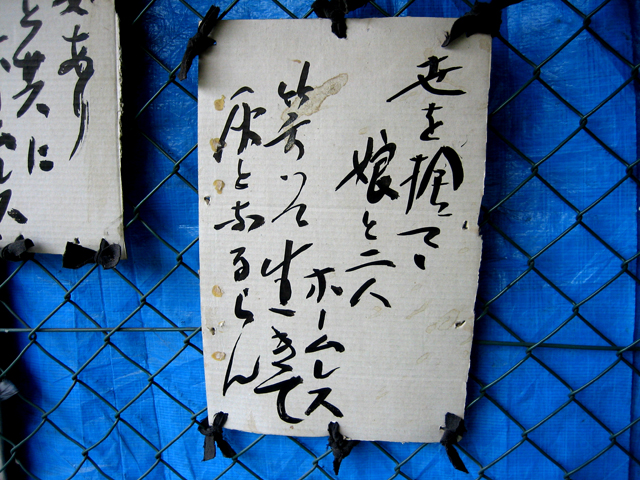 世を捨て、
娘と二人
ホームレス
笑いて生きて
灰となるらん
あり
と共に
レス